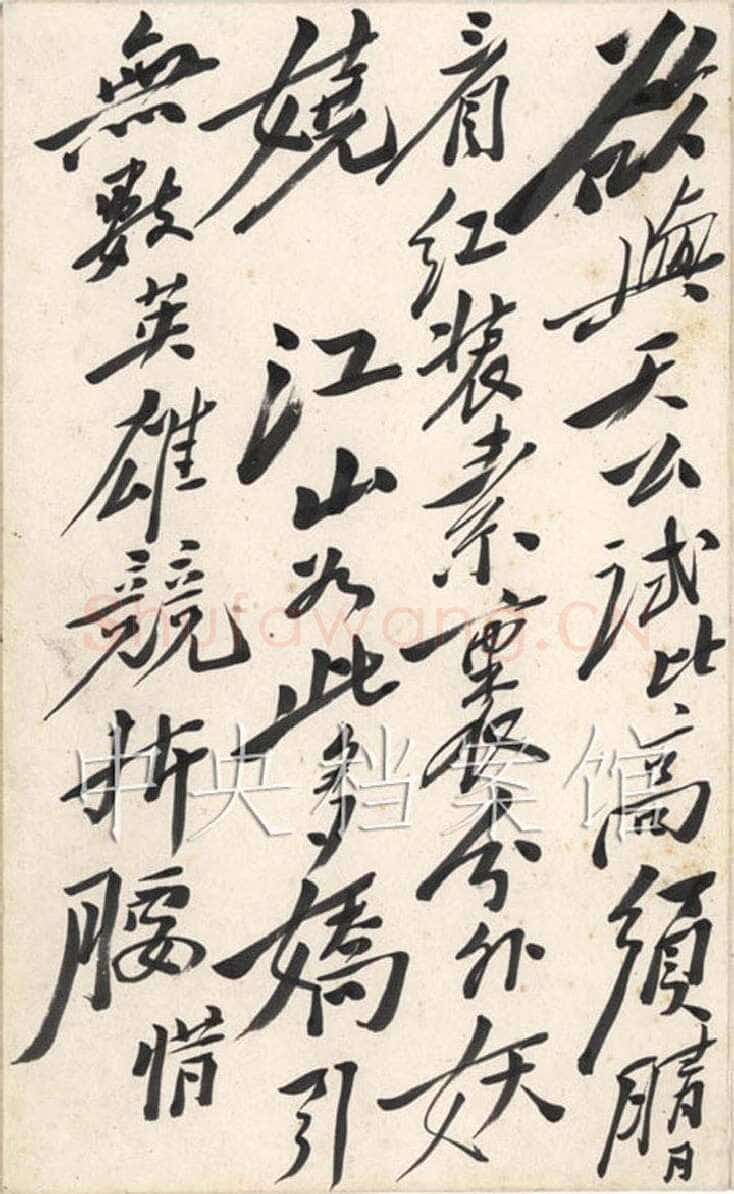 欲與天公試比高須晴日
看紅裝素裹分外妖
嬈 江山如此多嬌引
無數英雄競折腰惜
Shufawang.CN
中央档案馆